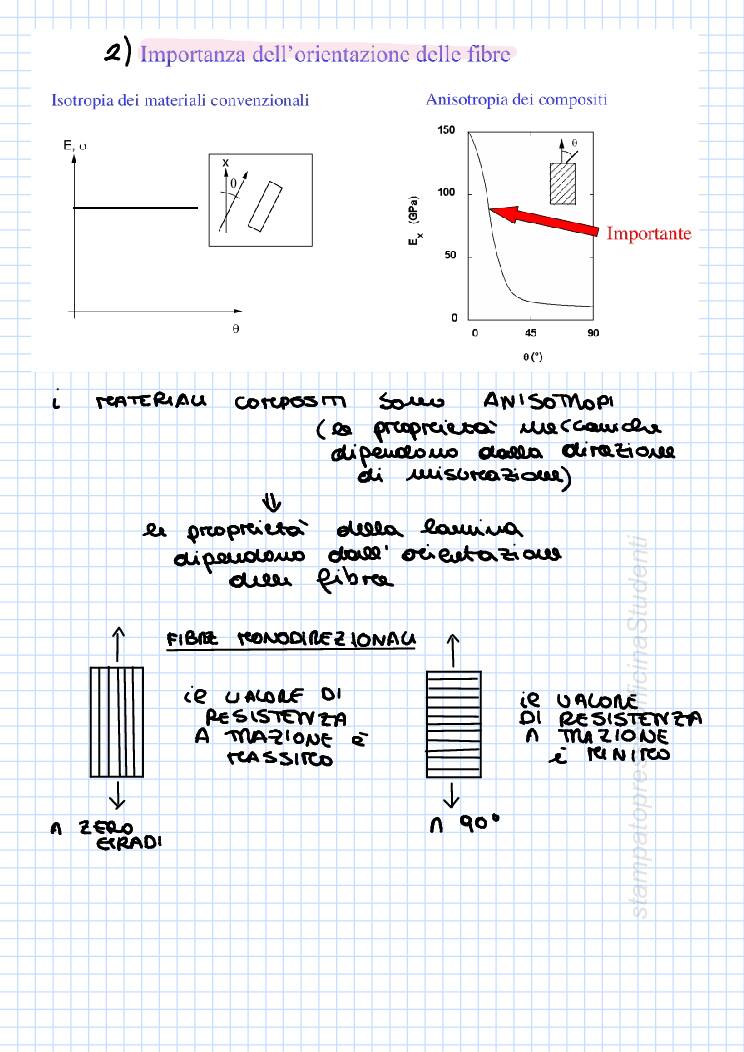 2) Importanza dell'orientazione delle fibre
Isotropia dei materiali convenzionali
Anisotropia dei compositi
E, υ
x
θ
θ
150
100
50
0
E x (GPa)
θ
Importante
0 45 90
θ (°)
i MATERIALI COMPOSITI sono ANISOTROPI
(le proprietà meccaniche
dipendono dalla direzione
di misurazione)
⇓
le proprietà della lamina
dipendono dall'orientazione
delle fibre
FIBRE MONODIREZIONALI
il VALORE DI
RESISTENZA
A TRAZIONE è
MASSIMO
il VALORE
DI RESISTENZA
A TRAZIONE
è MINIMO
A ZERO
GRADI
A 90°